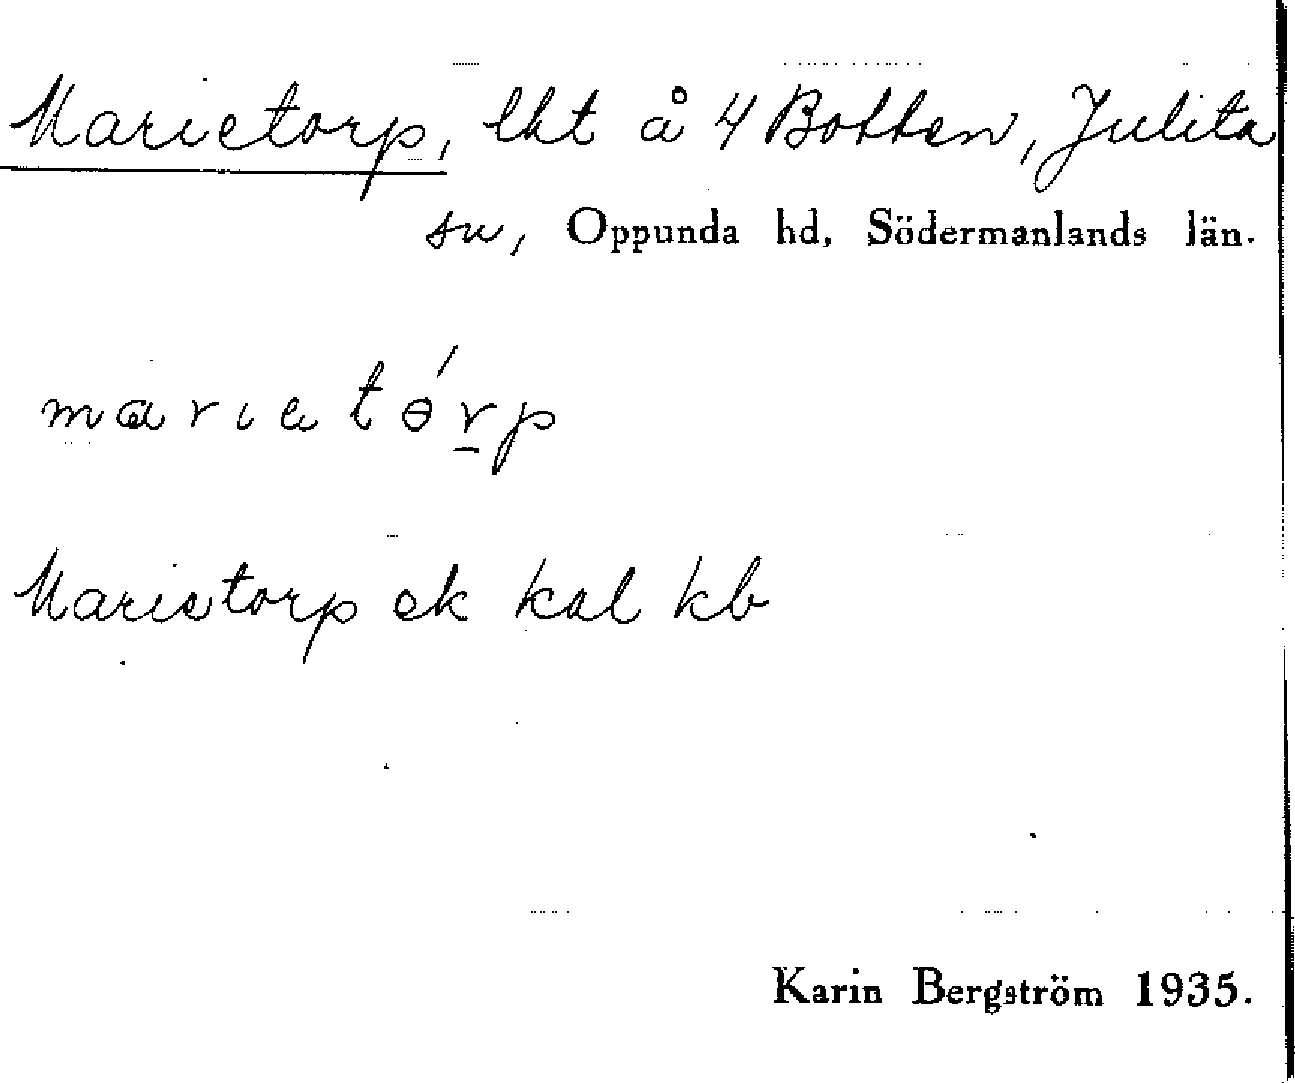 Marietorp, lht å 4 Botten, Julita
sn, Oppunda hd, Södermanlands län.
marietórp
Marietorp ek kal kb
Karin Bergström 1935.